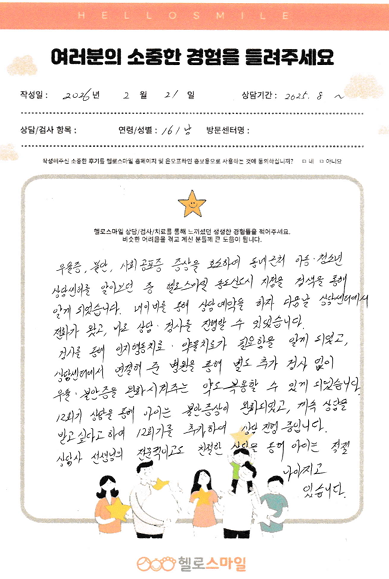 HELLOSMILE
여러분의 소중한 경험을 들려주세요
작성일 : 2026년 2 월 21 일 상담기간 : 2025. 8 ~
상담/검사 항목 : 연령/성별 : 16 / 남 방문센터명 :
작성해주신 소중한 후기를 헬로스마일 홈페이지 및 온오프라인 홍보용으로 사용하는 것에 동의하십니까? ㅁ 네 ㅁ 아니오
헬로스마일 상담/검사/치료를 통해 느끼셨던 생생한 경험들을 적어주세요.
비슷한 어려움을 겪고 계신 분들께 큰 도움이 됩니다.
우울증, 불안, 사회공포증 증상을 호소하여 동네 근처 아동·청소년
상담센터를 알아보던 중 헬로스마일 지점을 검색을 통해
알게 되었습니다. 네이버를 통해 상담예약을 하자 다음날 상담센터에서
전화가 왔고, 바로 상담·검사를 진행할 수 있었습니다.
검사를 통해 인지행동치료·약물치료가 필요함을 알게 되었고,
상담센터에서 연결해 준 병원을 통해 별도 추가 검사 없이
우울·불안증을 완화시켜주는 약도 복용할 수 있게 되었습니다.
12회기 상담을 통해 아이는 불안증상이 완화되었고, 계속 상담을
받고 싶다고 하여 12회기를 추가하여 상담 진행 중입니다.
상담사 선생님의 전문적이고도 친절한 상담을 통해 아이는 점점
나아지고
있습니다.
헬로스마일